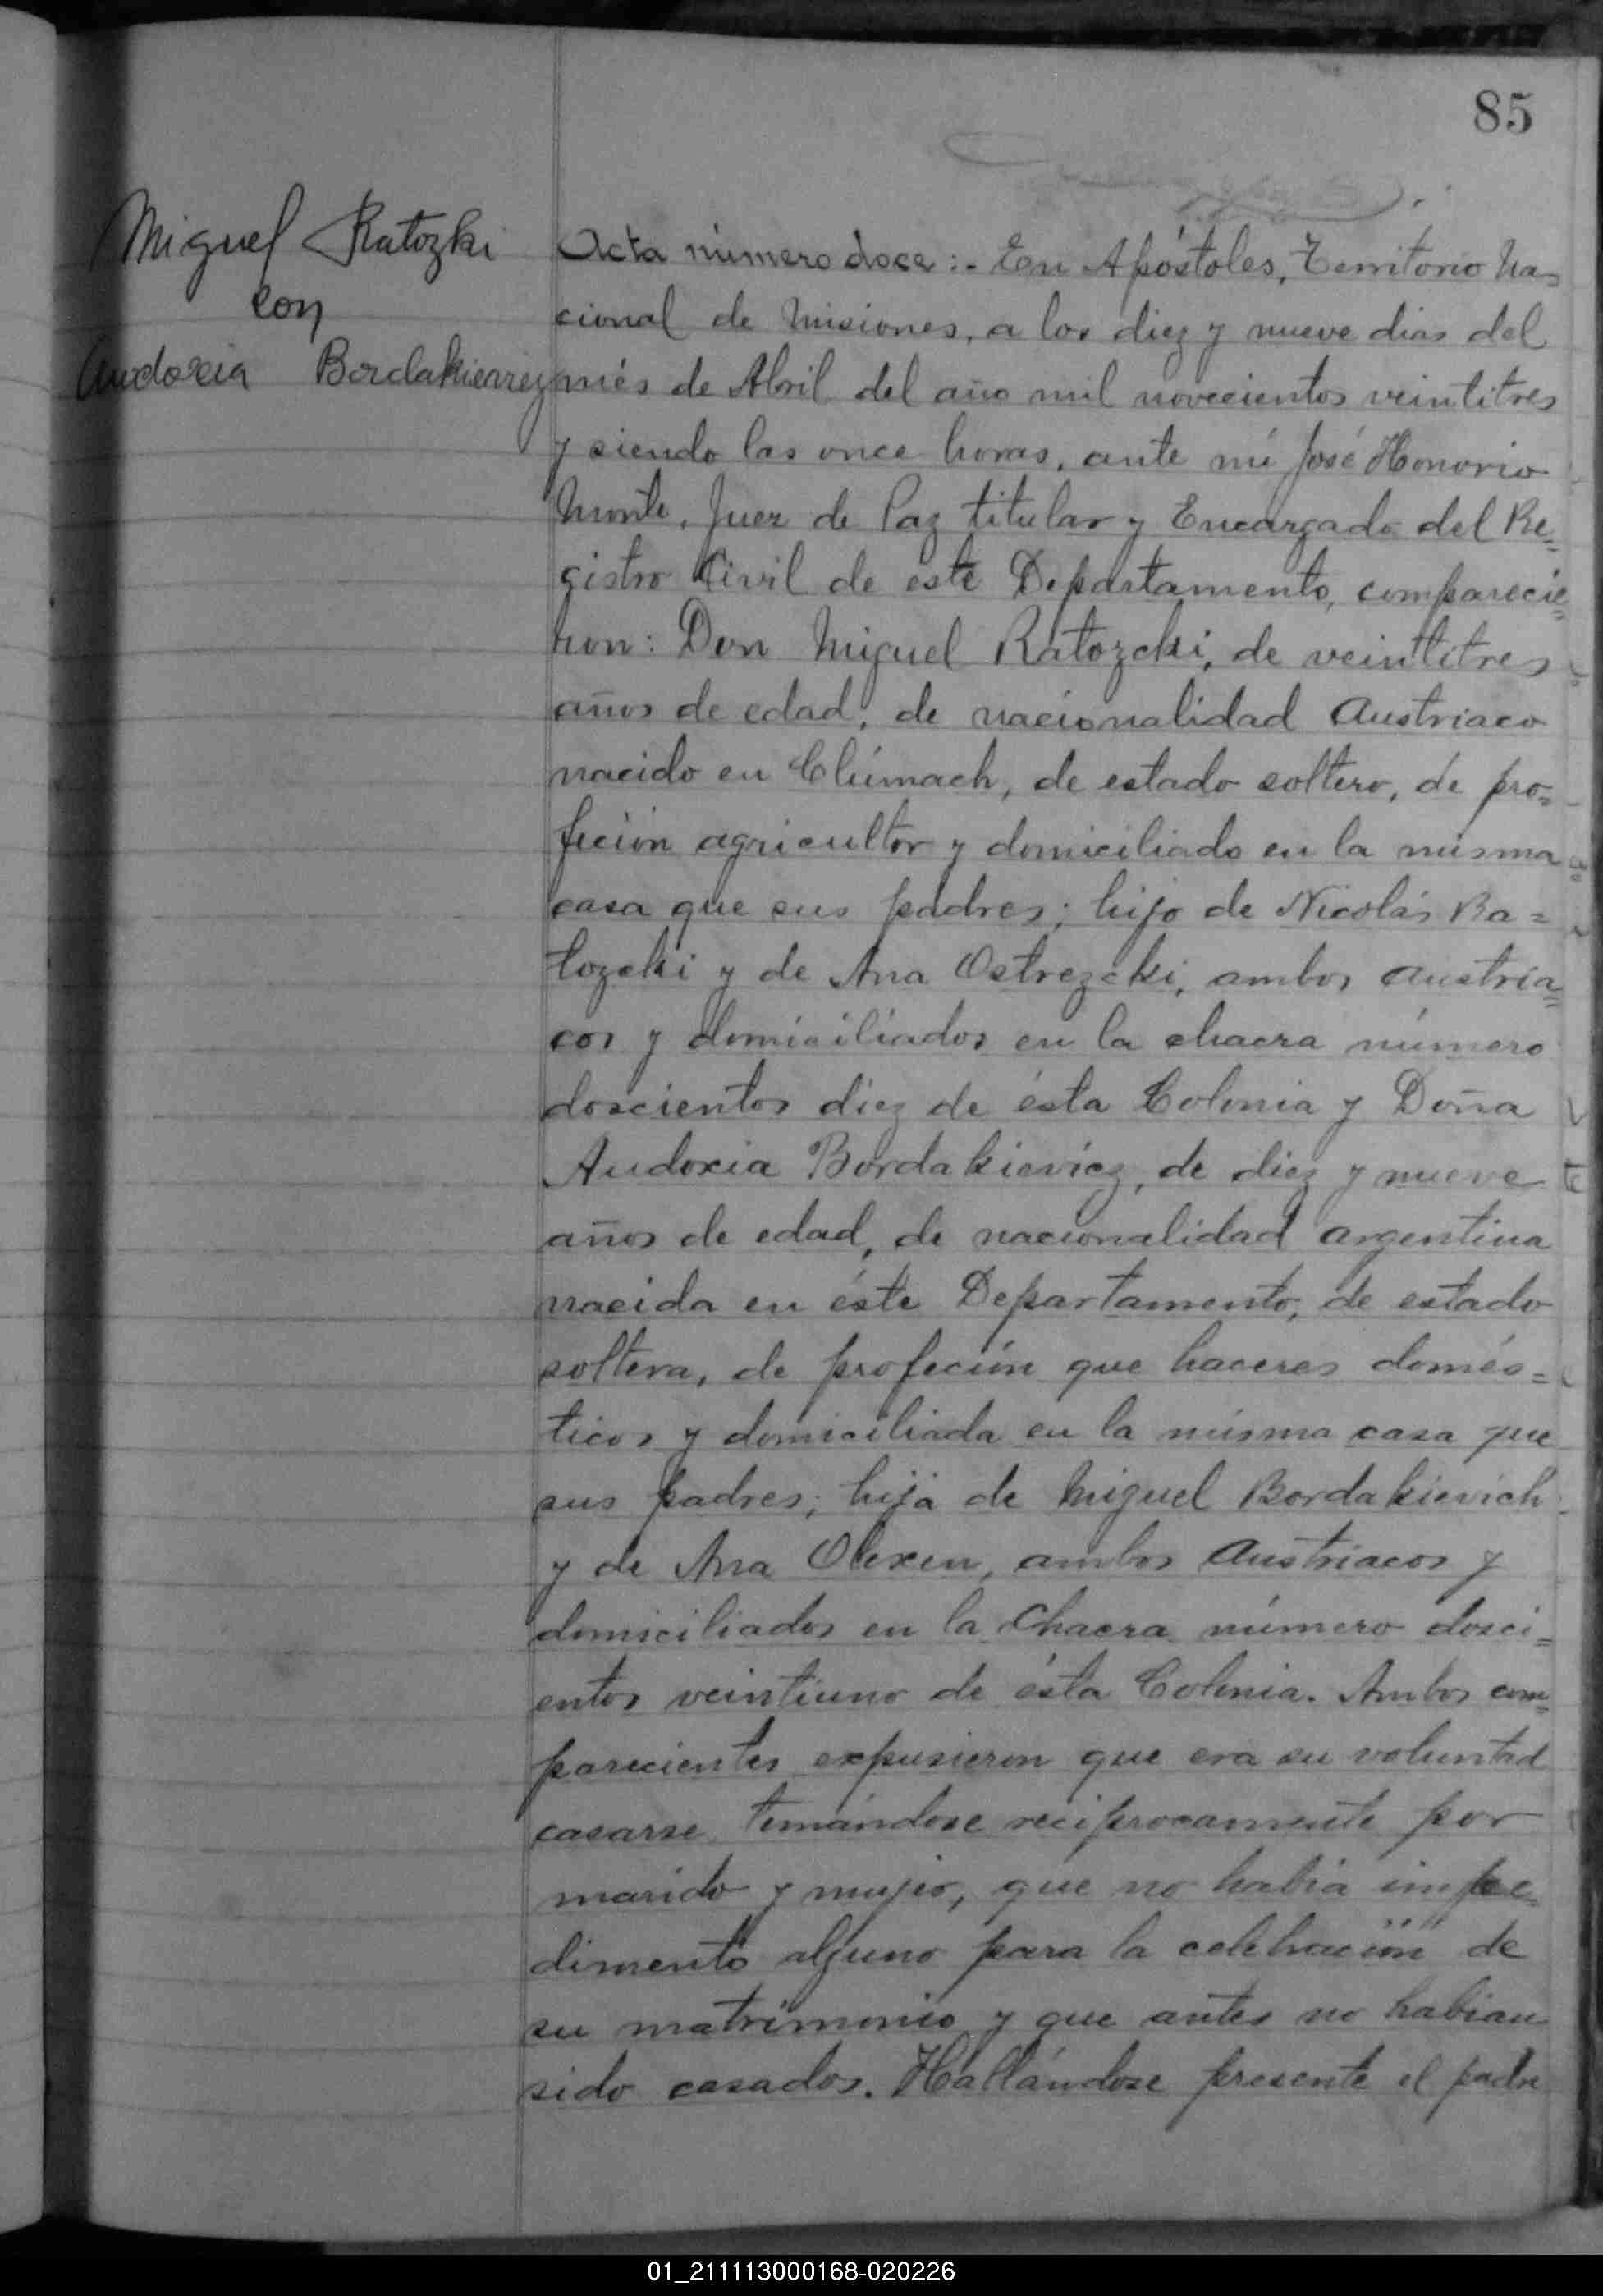 85
Miguel Ratozki
con
Audoxia Bordakievicz
Acta número doce:- En Apóstoles, Territorio Na-
cional de Misiones, a los diez y nueve dias del
més de Abril del año mil novecientos veintitres
y siendo las once horas, ante mí José Honorio
Monte, Juez de Paz titular y Encargado del Re=
gistro Civil de este Departamento, comparecie=
ron: Don Miguel Ratozcki, de veintitres
años de edad, de nacionalidad Austriaco
nacido en Clúmach, de estado soltero, de pro=
feción agricultor y domiciliado en la misma
casa que sus padres; hijo de Nicolás Ra=
tozcki y de Ana Ostrezcki, ambos austria=
cos y domiciliados en la chacra número
doscientos diez de ésta Colonia y Doña
Audoxia Bordakievicz, de diez y nueve
años de edad, de nacionalidad argentina
nacida en éste Departamento, de estado
soltera, de profeción que haceres domés=
ticos y domiciliada en la misma casa que
sus padres; hija de Miguel Bordakievich
y de Ana Olexen, ambos Austriacos y
domiciliados en la Chacra número dosci=
entos veintiuno de ésta Colonia. Ambos com=
parecientes expusieron que era su voluntad
casarse tomándose reciprocamente por
marido y mujer, que no habia impe=
dimento alguno para la celebración de
su matrimonio y que antes no habian
sido casados. Hallándose presente el padre
01_211113000168-020226